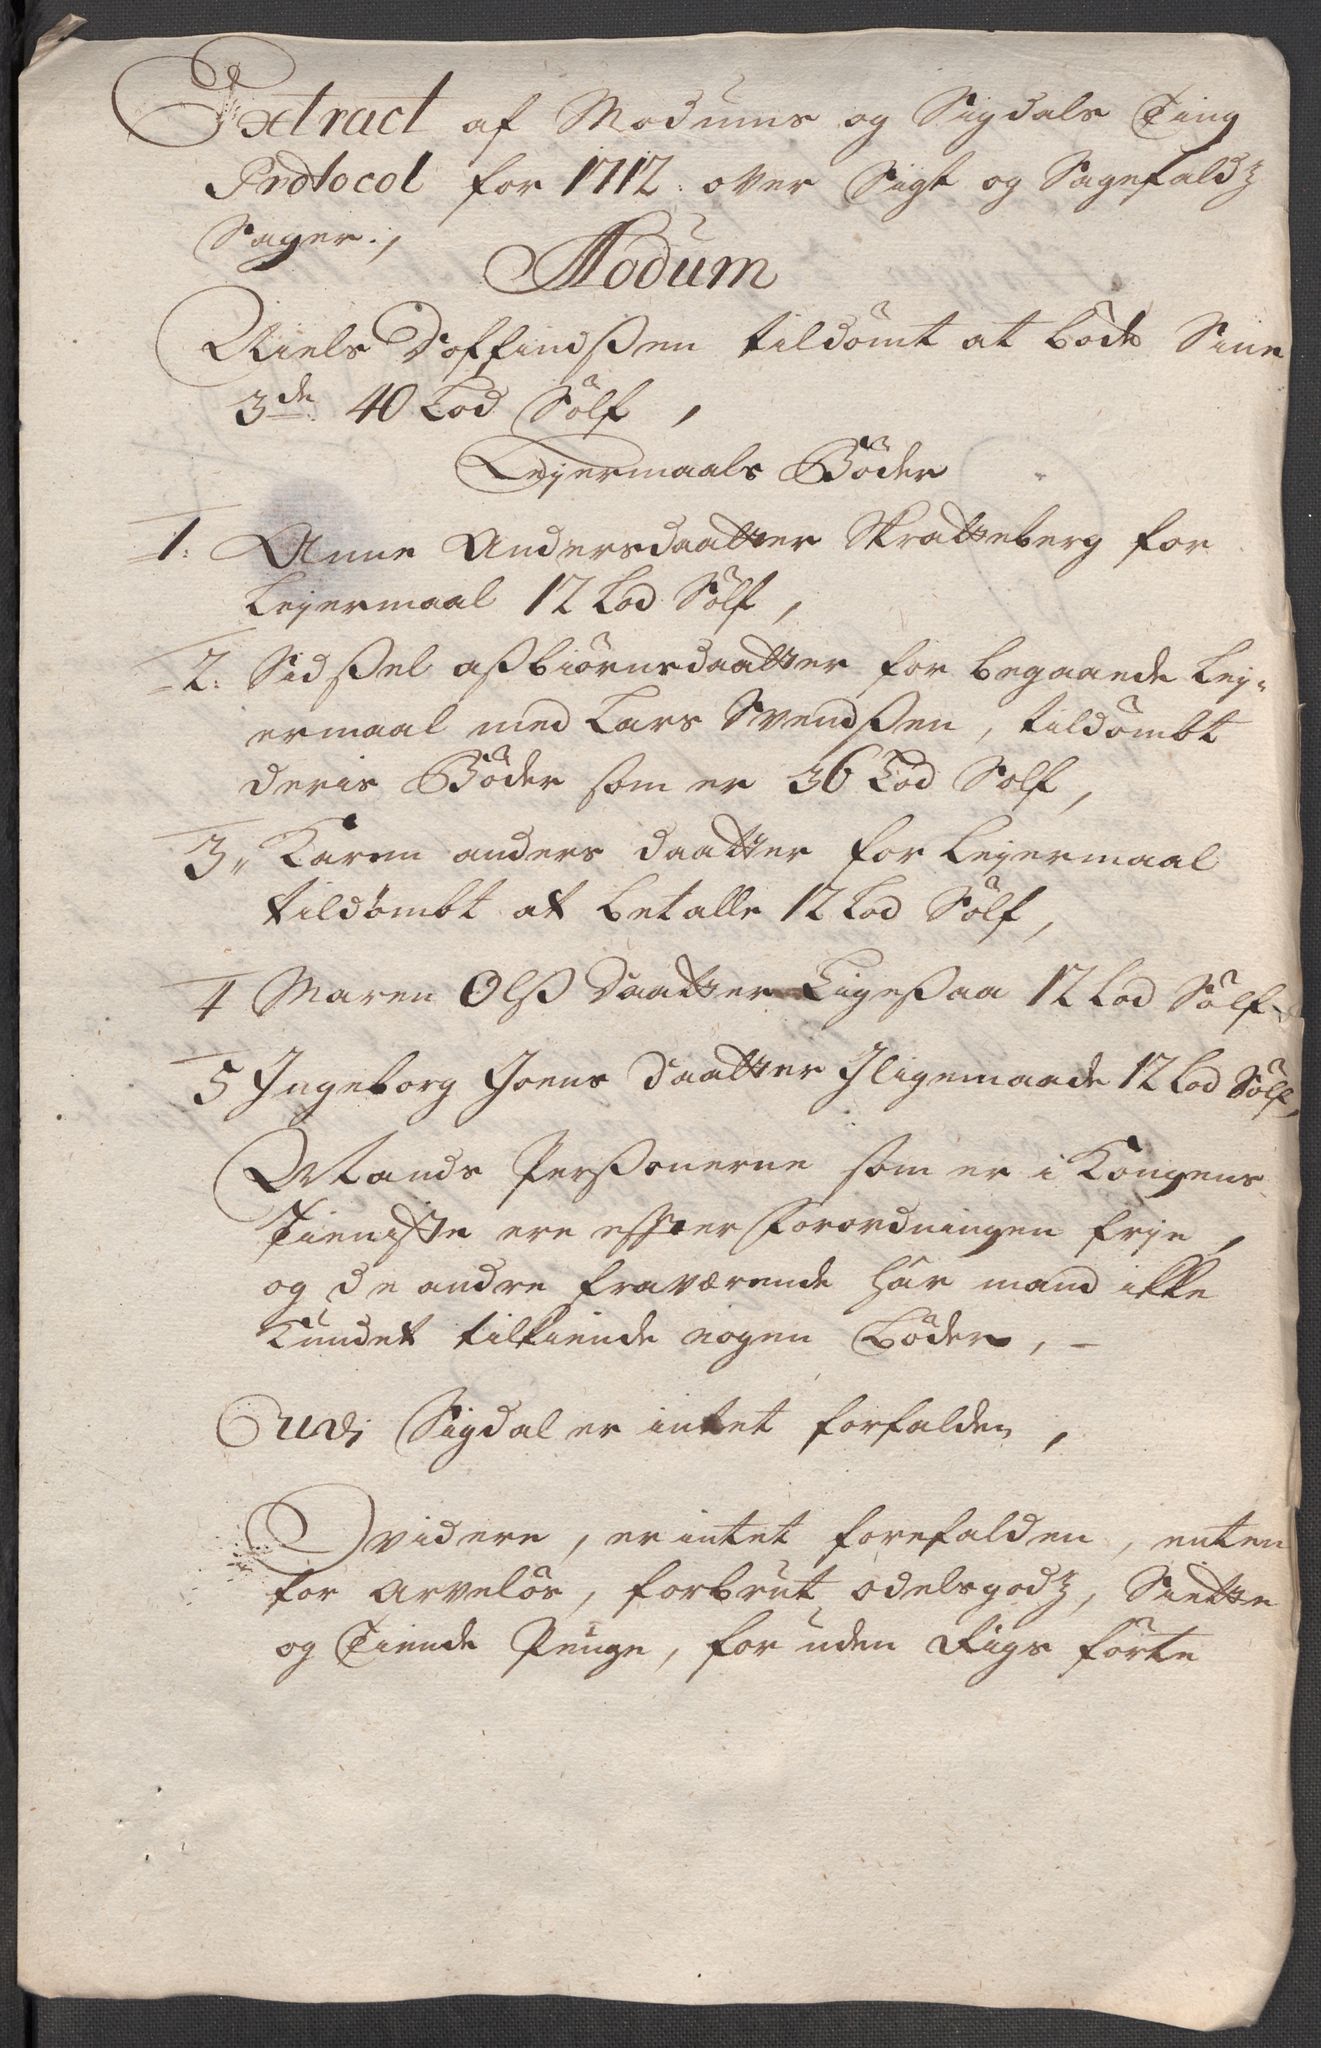 Extract af Modums og Sigdals Ting
Protocol for 1712. over Sigt og Sagefaldz
Sager.,
Modum
Niels Toffindßen tildömt at böde Sine
3de 40 Lod Sölf,
Lejermaals Böder
1. Anne Andersdaatter Skratteberg for
Lejermaal 12 Lod Sölf,
2. Sidßel aßbiörnsdaatter for begaaede Lej=
ermaal med Lars Svendßen, tildömbt
deris Böder som er 36 Lod Sölf,
3,, Karen anders daatter for Lejermaal
tildömbt at betalle 12 Lod Sölf,
4 Maren Olß daatter Ligeßaa 12 Lod Sölf
5 Ingeborg Joens daatter Iligemaade 12 Lod Sölf,
Mands Perßonerne som er i Kongens
Tieniste ere effter Forordningen frje,
og de andre fraværende har mand ikke
Kundet tilkiende nogen Böder, -
Udi Sigdal er intet forfalden,
Videre, er intet forefalden, enten
for arvelös, forbrut odelsgodz, Siette
og Tiende Penge, for uden Rigs förte